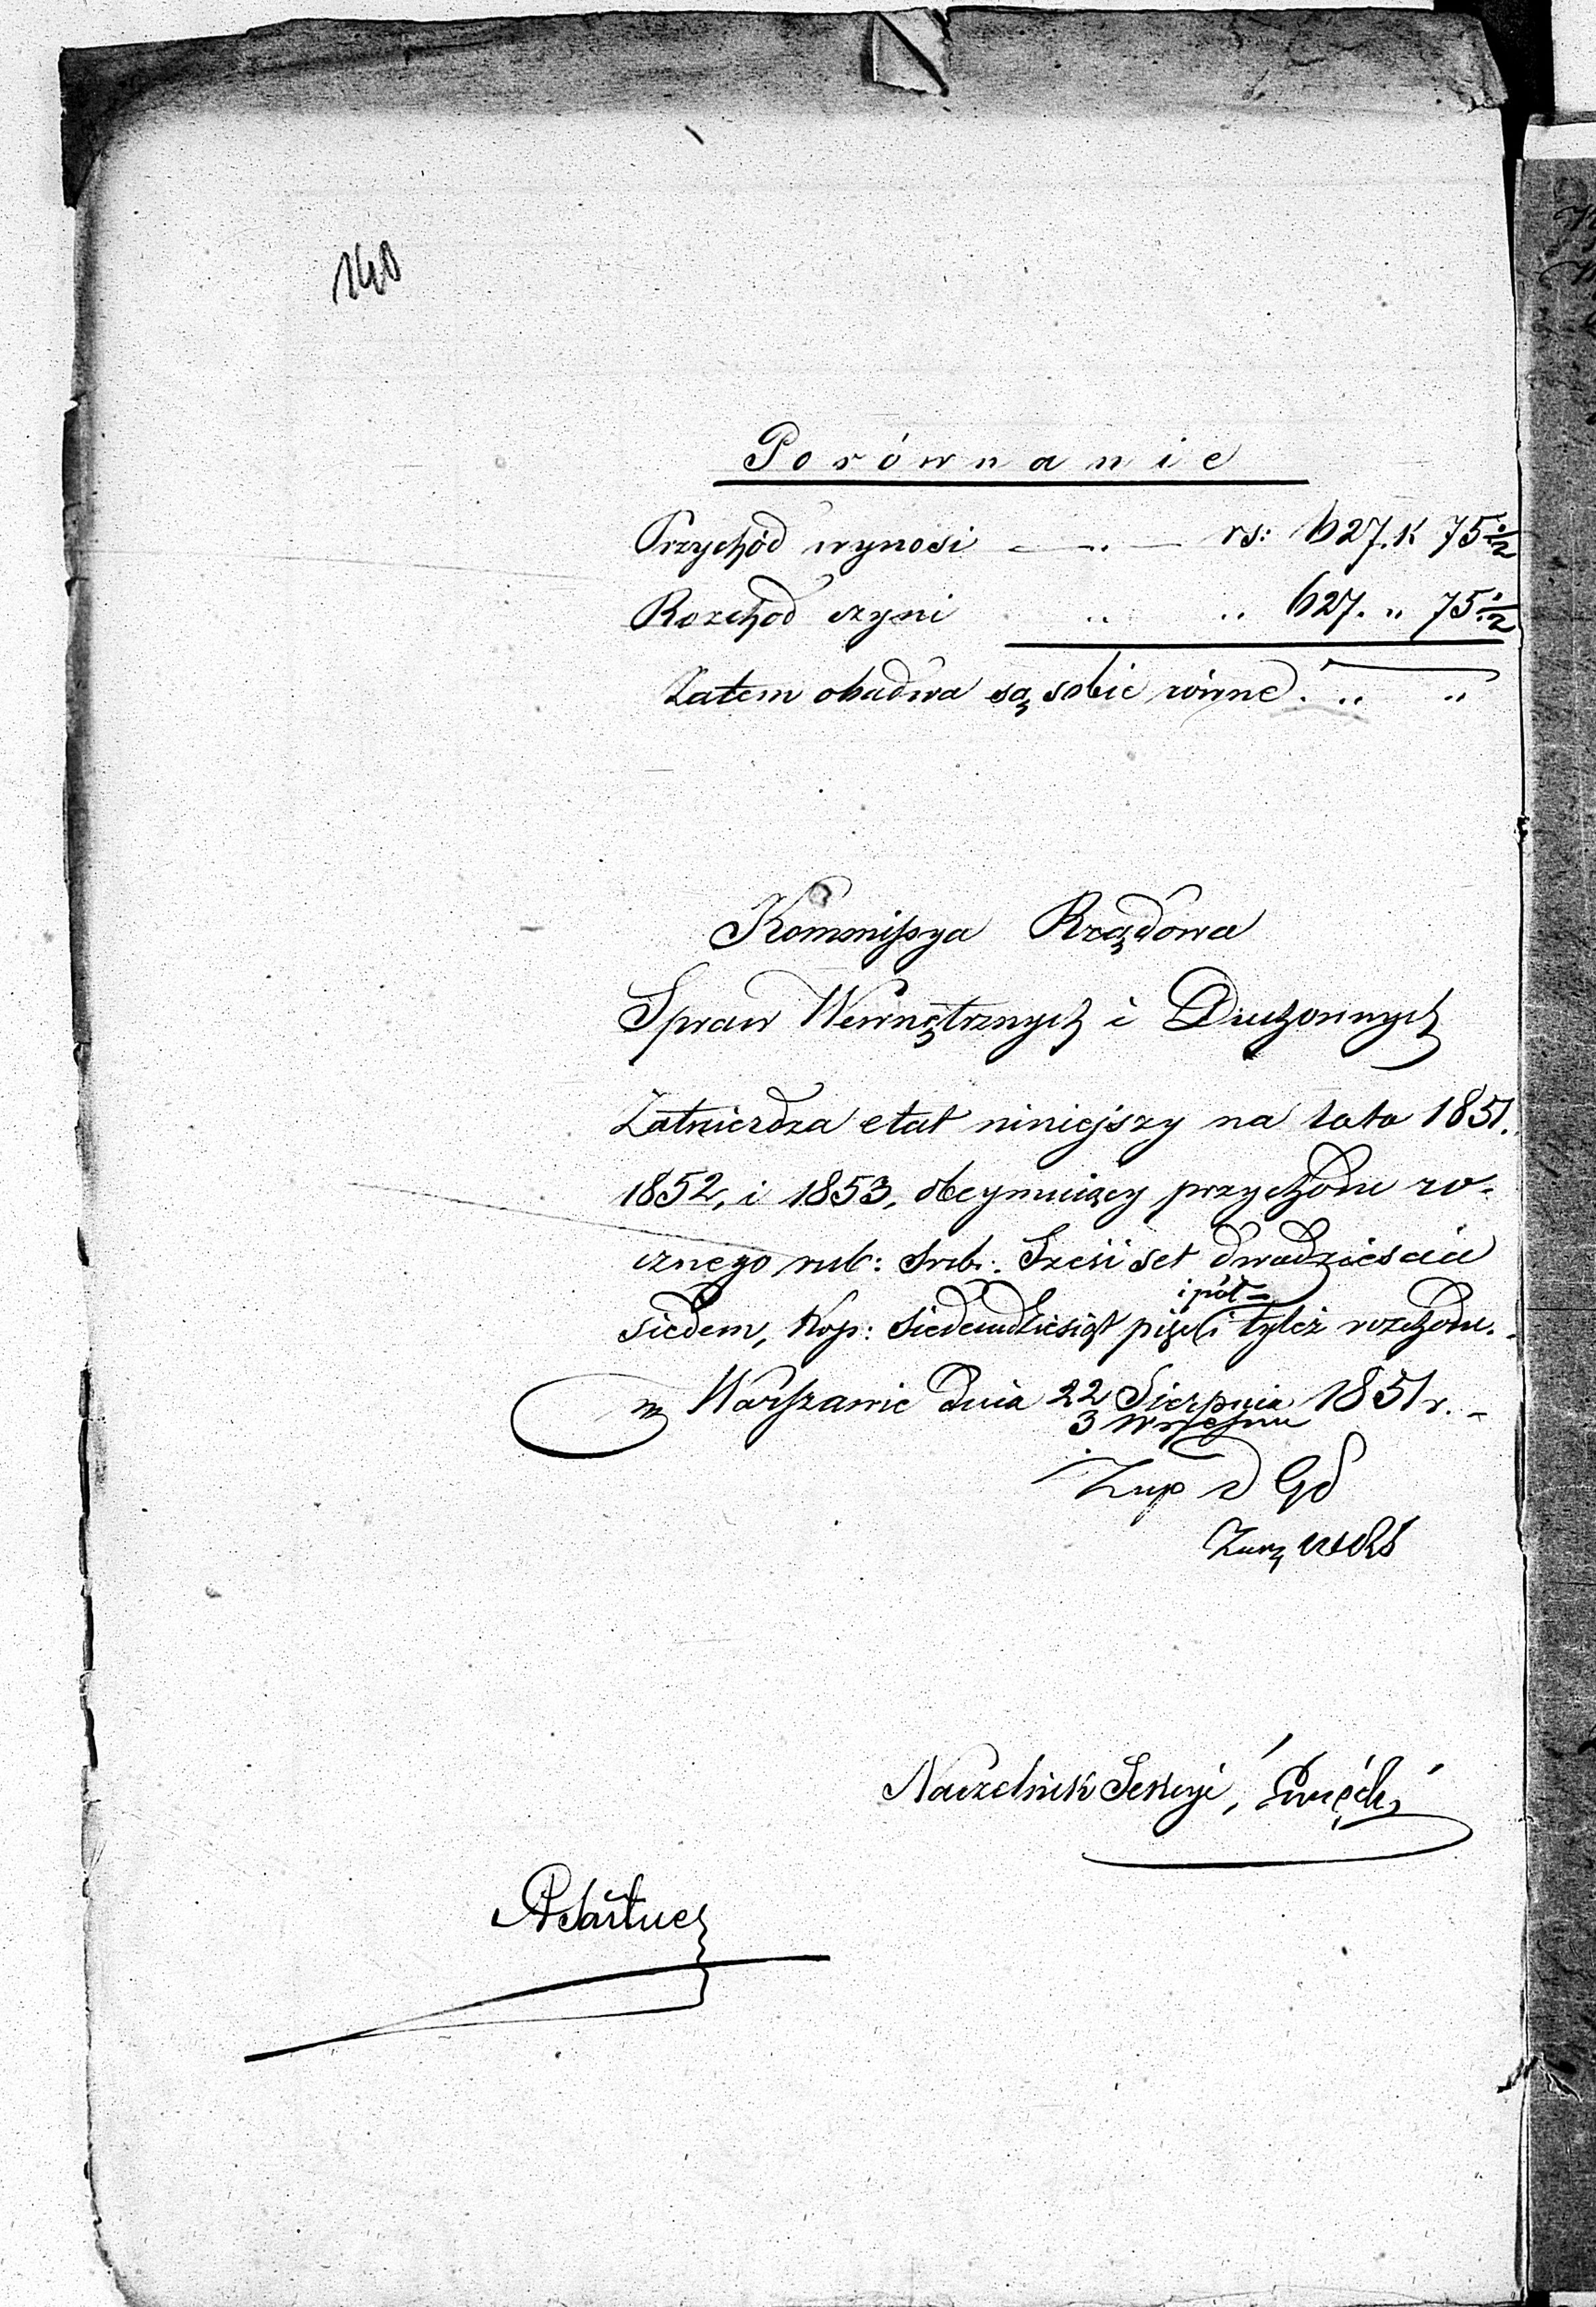 140
Porównanie
Przychód wynosi — „ — rs: 627. K 75 1/2
Rozchod czyni „ „ 627. „ 75 1/2
Zatem obadwa są sobie równe. „ „
Kommissya Rządowa
Spraw Wewnętrznych i Duchownych
Zatwierdza etat niniejszy na lata 1851.
1852, i 1853, obeymuiący przychodu ro-
cznego rub: srb: Sześć set dwadzieścia
siedem, Kop: siedemdziesiąt pięć i pół i tyleż rozchodu.
w Warszawie dnia 22 Sierpnia 1851 r.
3 Września
Naczelnik Sekcyi,